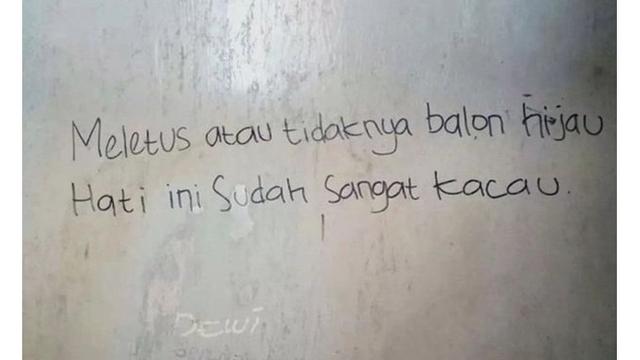 Meletus atau tidaknya balon hijau
Hati ini Sudah Sangat kacau.
Dewi